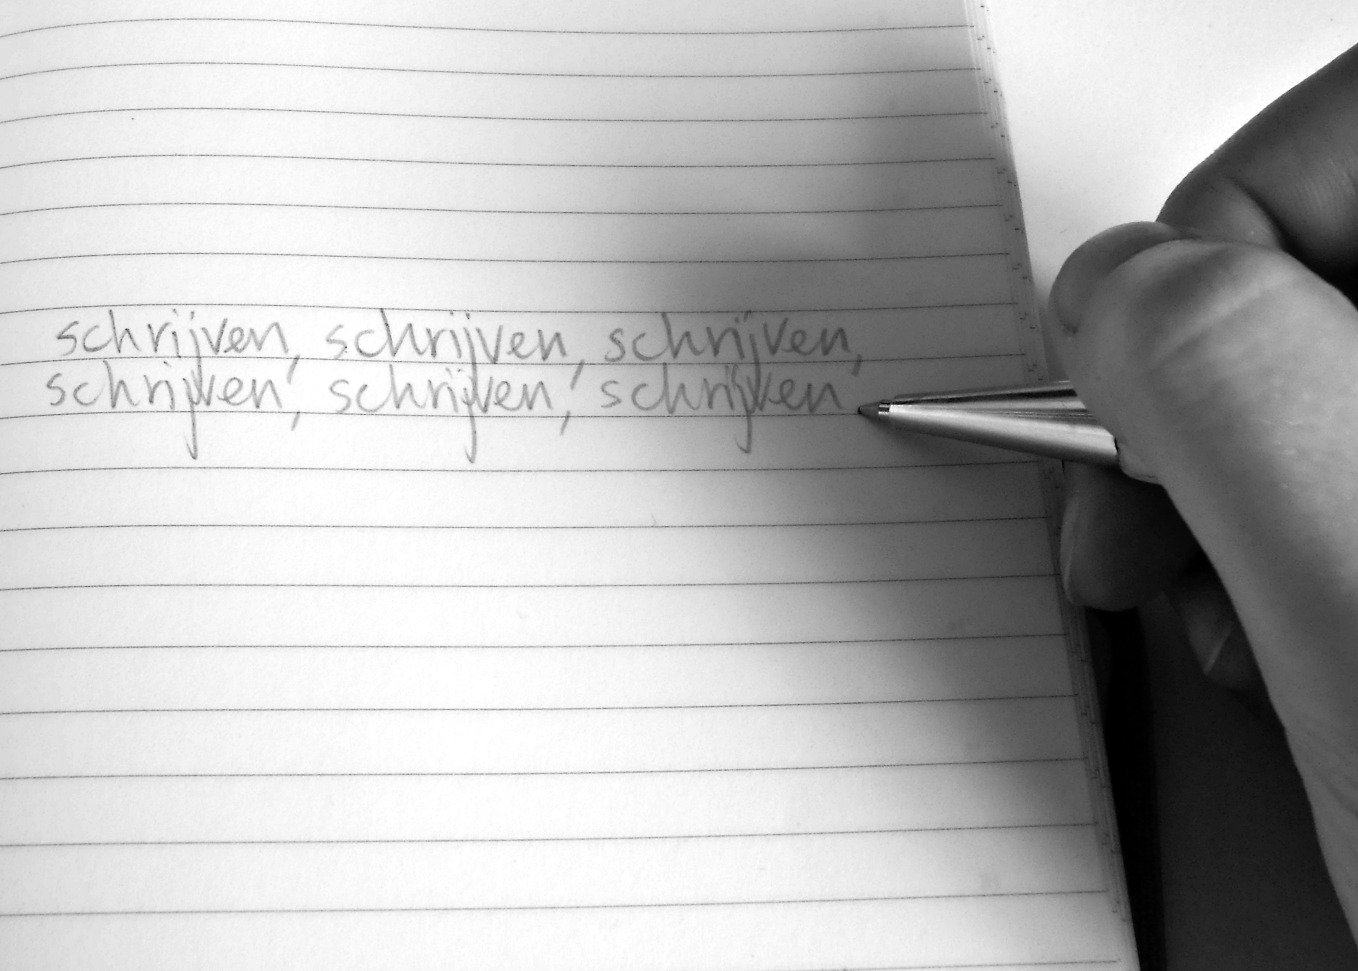 schrijven, schrijven, schrijven,
schrijven, schrijven, schrijven